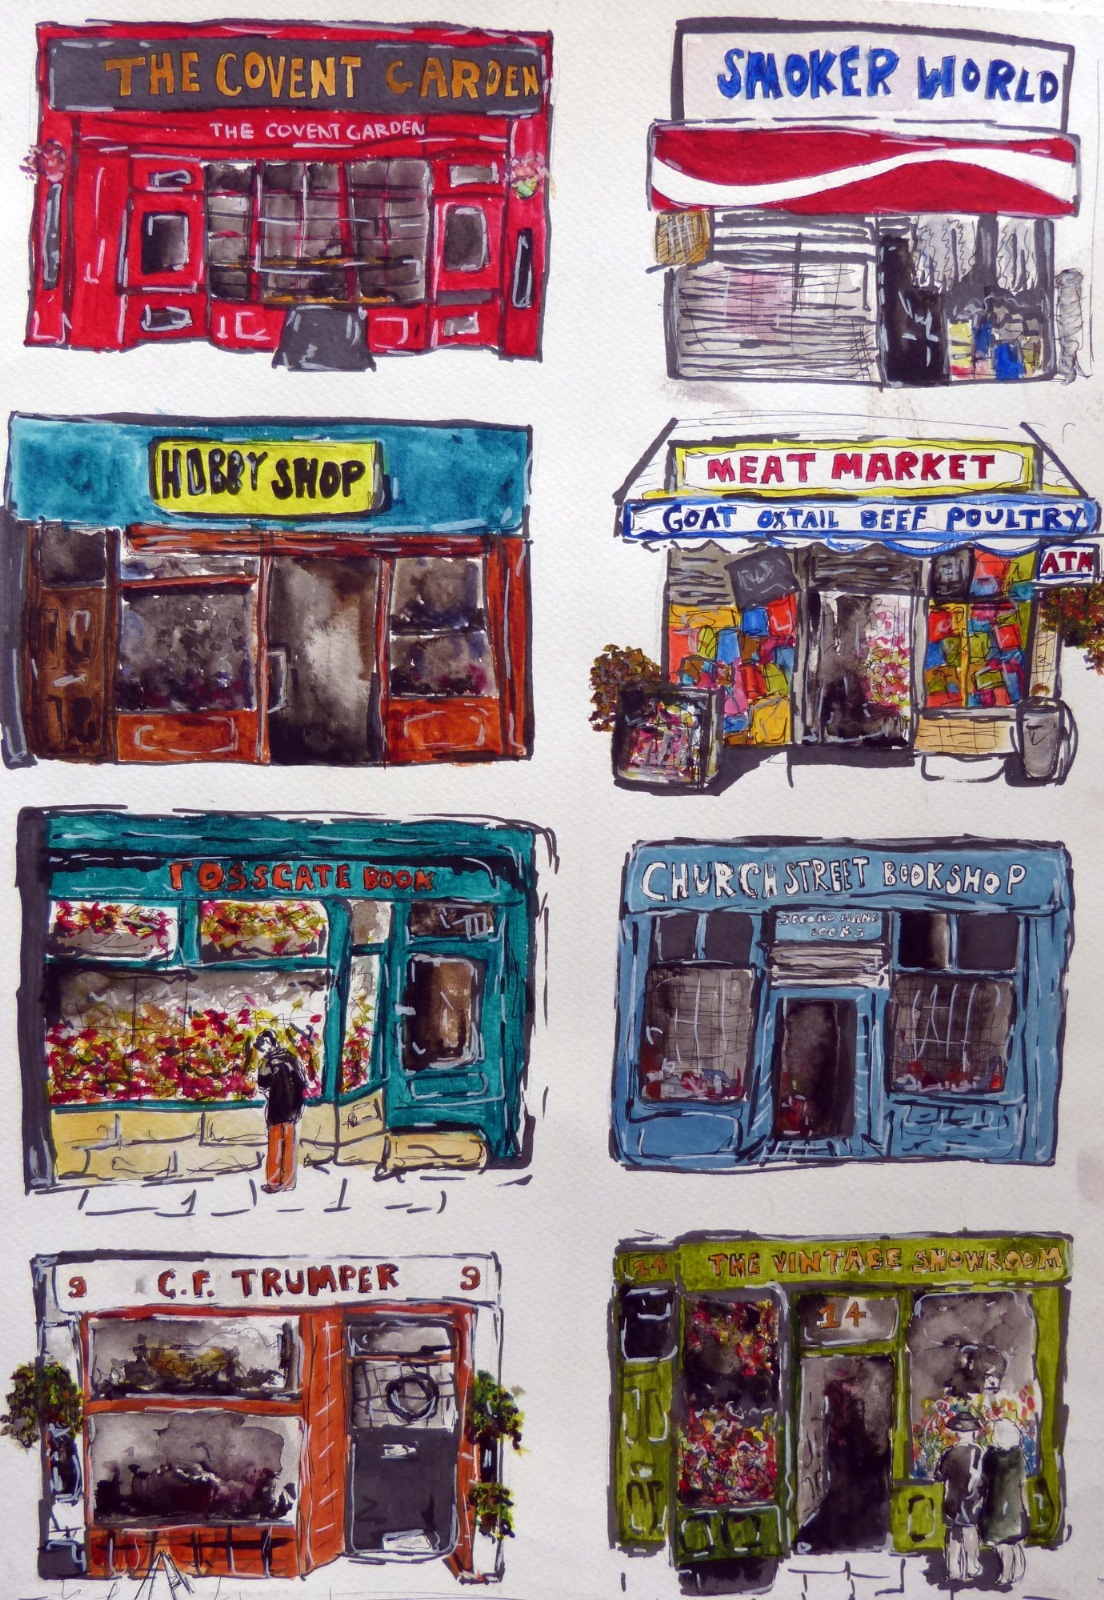 THE COVENT GARDEN
THE COVENT GARDEN
SMOKER WORLD
HOBBY SHOP
MEAT MARKET
GOAT OXTAIL BEEF POULTRY
ATM
ROSSGATE BOOK
CHURCH STREET BOOKSHOP
SECOND HAND
BOOKS
9 G.F. TRUMPER 9
14 THE VINTAGE SHOWROOM
14